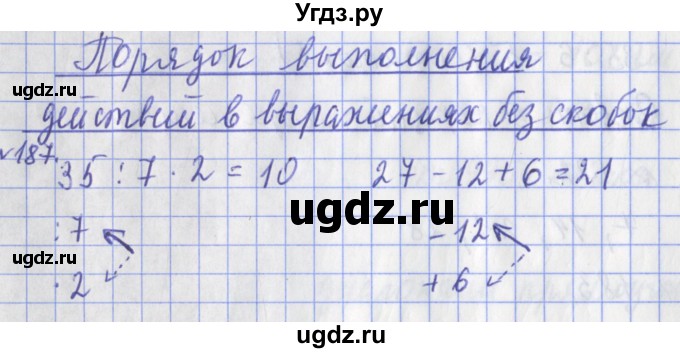 Угдз.ру
Порядок выполнения
ugdz.ru
действий в выражениях без скобок
№187. 35 : 7 · 2 = 10 27 - 12 + 6 = 21
ugdz.ru
: 7 - 12
ugdz.ru
· 2 + 6
ugdz.ru